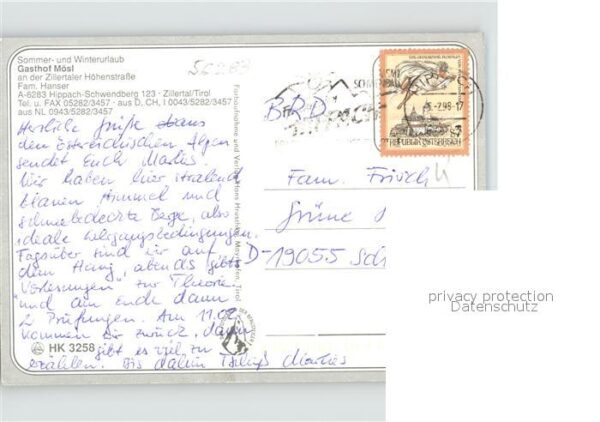 Sommer- und Winterurlaub
Gasthof Mösl
an der Zillertaler Höhenstraße
Fam. Hanser
A-6283 Hippach-Schwendberg 123 - Zillertal/Tirol
Tel. u. FAX 05282/3457 - aus D, CH, I 0043/5282/3457
aus NL 0943/5282/3457
56283
BRD
REPUBLIK ÖSTERREICH
Herzliche Grüße aus
den österreichischen Alpen
sendet Euch Matias.
Wir haben hier strahlend
blauen Himmel und
schneebedeckte Berge, also
ideale Lehrgangsbedingungen.
Tagsüber sind wir auf
dem Hang, abends gibts
"Vorlesungen" zur Theorie
und am Ende dann
2 Prüfungen. Am 11.02.
kommen wir zurück, dann
gibt es viel zu
erzählen. Bis dahin Matias
HK 3258
Fam. Frisch
Grüne
D-19055 Sch
privacy protection
Datenschutz